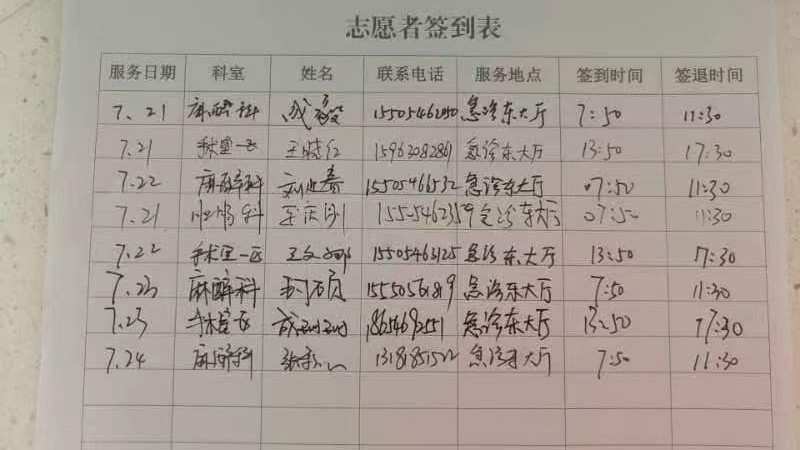 志愿者签到表
服务日期 科室 姓名 联系电话 服务地点 签到时间 签退时间
7.21 麻醉科 成毅 急诊东大厅 7:50 11:30
7.21 手术室一区 王晓红 15963082861 急诊东大厅 13:50 17:30
7.22 麻醉科 刘 春 15505466532 急诊东大厅 07:50 11:30
7.21 科 急诊东大厅 07:50 11:30
7.22 手术室一区 王文娜 15505463125 急诊东大厅 13:50 17:30
7.23 麻醉科 15550561819 急诊东大厅 7:50 11:30
7.23 手术室 18654692551 急诊东大厅 13:50 17:30
7.24 麻醉科 13181851522 急诊东大厅 7:50 11:30